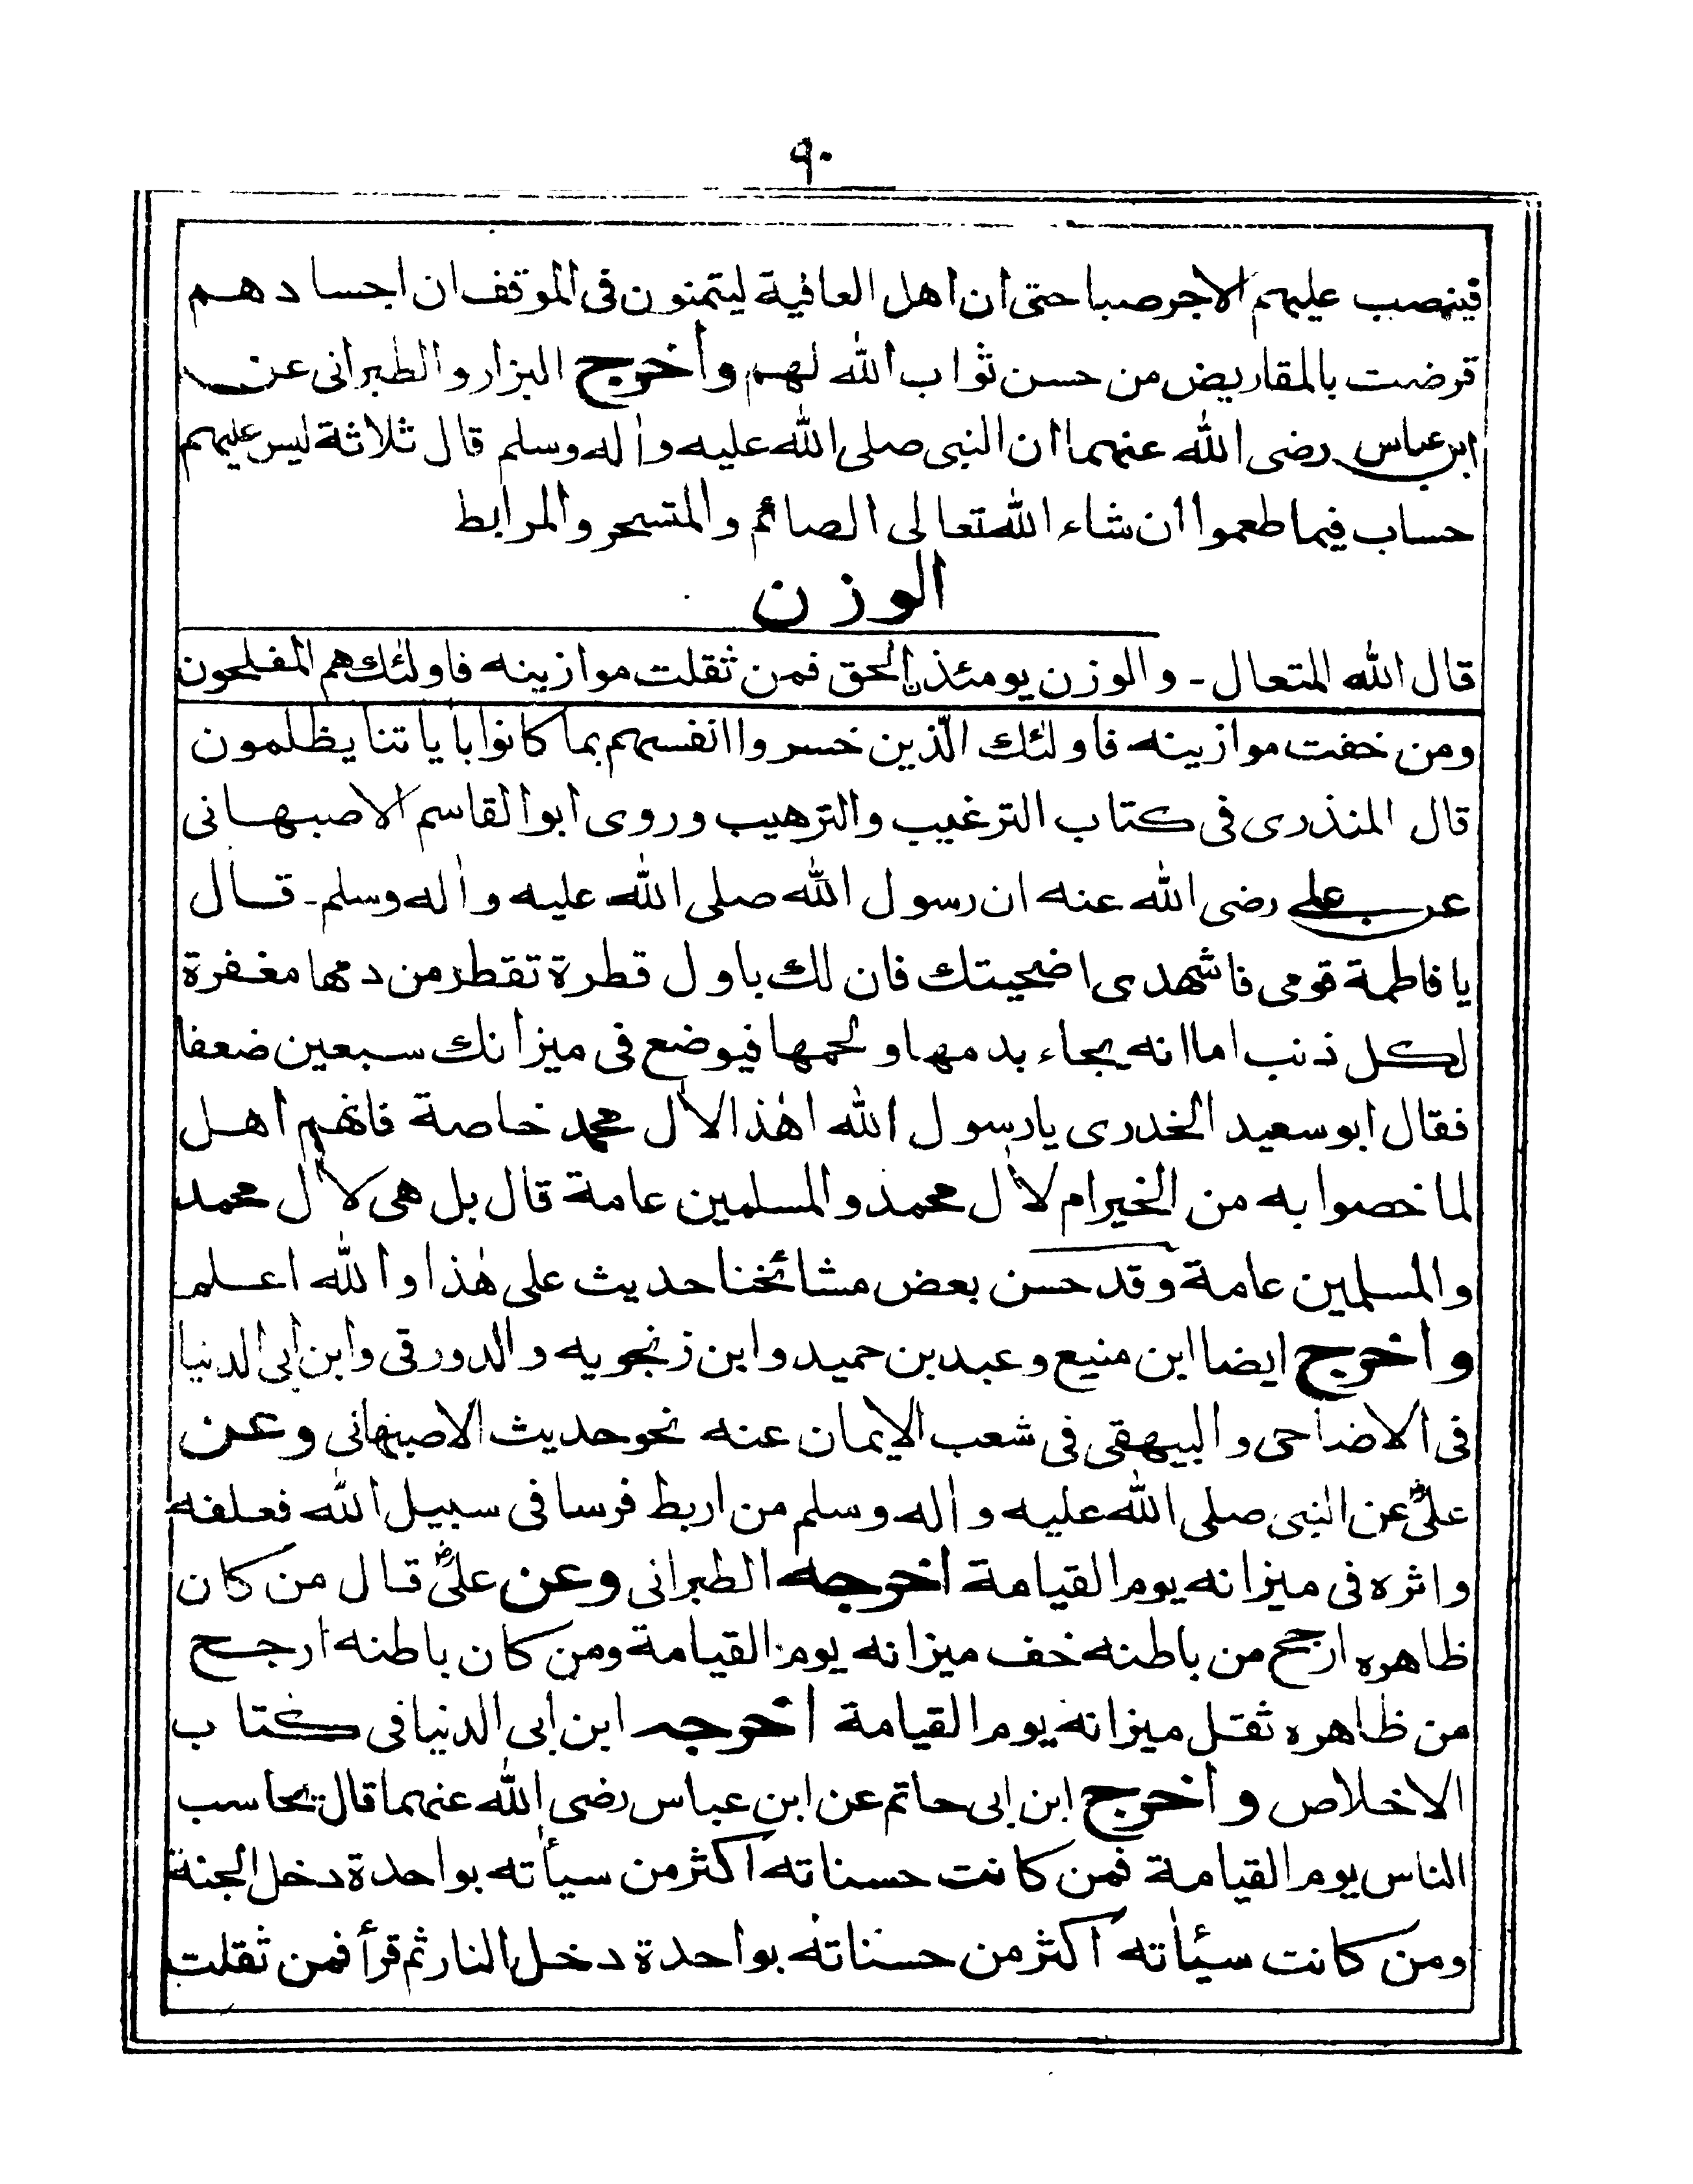 ۹۰
فينصب عليهم الاجر صبا حتى ان اهل العافية ليتمنون فى الموقف ان اجسادهم
قرضت بالمقاريض من حسن ثواب الله لهم وأخرج البزار والطبرانى عن
ابن عباس رضى الله عنهما ان النبى صلى الله عليه واٰله وسلم قال ثلاثة ليس عليهم
حساب فيما طعموا ان شاء الله تعالى الصائم والمتسحر والمرابط
الوزن
قال الله المتعال ـ والوزن يومئذن الحق فمن ثقلت موازينه فاولئك هم المفلحون
ومن خفت موازينه فاولئك الّذين خسروا انفسهم بما كانوا باٰياتنا يظلمون
قال المنذرى فى كتاب الترغيب والترهيب وروى ابوالقاسم الاصبهانى
عن على رضى الله عنه ان رسول الله صلى الله عليه واٰله وسلم ـ قال
يا فاطمة قومى فاشهدى اضحيتك فان لك باول قطرة تقطر من دمها مغفرة
لكل ذنب اما انه يجاء بدمها ولحمها فيوضع فى ميزانك سبعين ضعفا
فقال ابو سعيد الخدرى يارسول الله اهٰذا لاٰل محمد خاصة فانهم اهل
لما خصوا به من الخير ام لاٰل محمد والمسلمين عامة قال بل هى لاٰل محمد
والمسلمين عامة وقد حسن بعض مشائخنا حديث على هٰذا والله اعلم
واخرج ايضا ابن منيع وعبد بن حميد وابن زنجويه والدورقى وابن ابى الدنيا
فى الاضاحى والبيهقى فى شعب الايمان عنه نحو حديث الاصبهانى وعن
علىؓ عن النبى صلى الله عليه واٰله وسلم من اربط فرسا فى سبيل الله فعلفه
واثره فى ميزانه يوم القيامة اخرجه الطبرانى وعن علىؓ قال من كان
ظاهره ارجح من باطنه خف ميزانه يوم القيامة ومن كان باطنه ارجح
من ظاهره ثقل ميزانه يوم القيامة اخرجه ابن ابى الدنيا فى كتاب
الاخلاص وأخرج ابن ابى حاتم عن ابن عباس رضى الله عنهما قال يحاسب
الناس يوم القيامة فمن كانت حسناته اكثر من سيأٰته بواحدة دخل الجنة
ومن كانت سيئاٰته اكثر من حسناته بواحدة دخل النار ثم قرأ فمن ثقلت